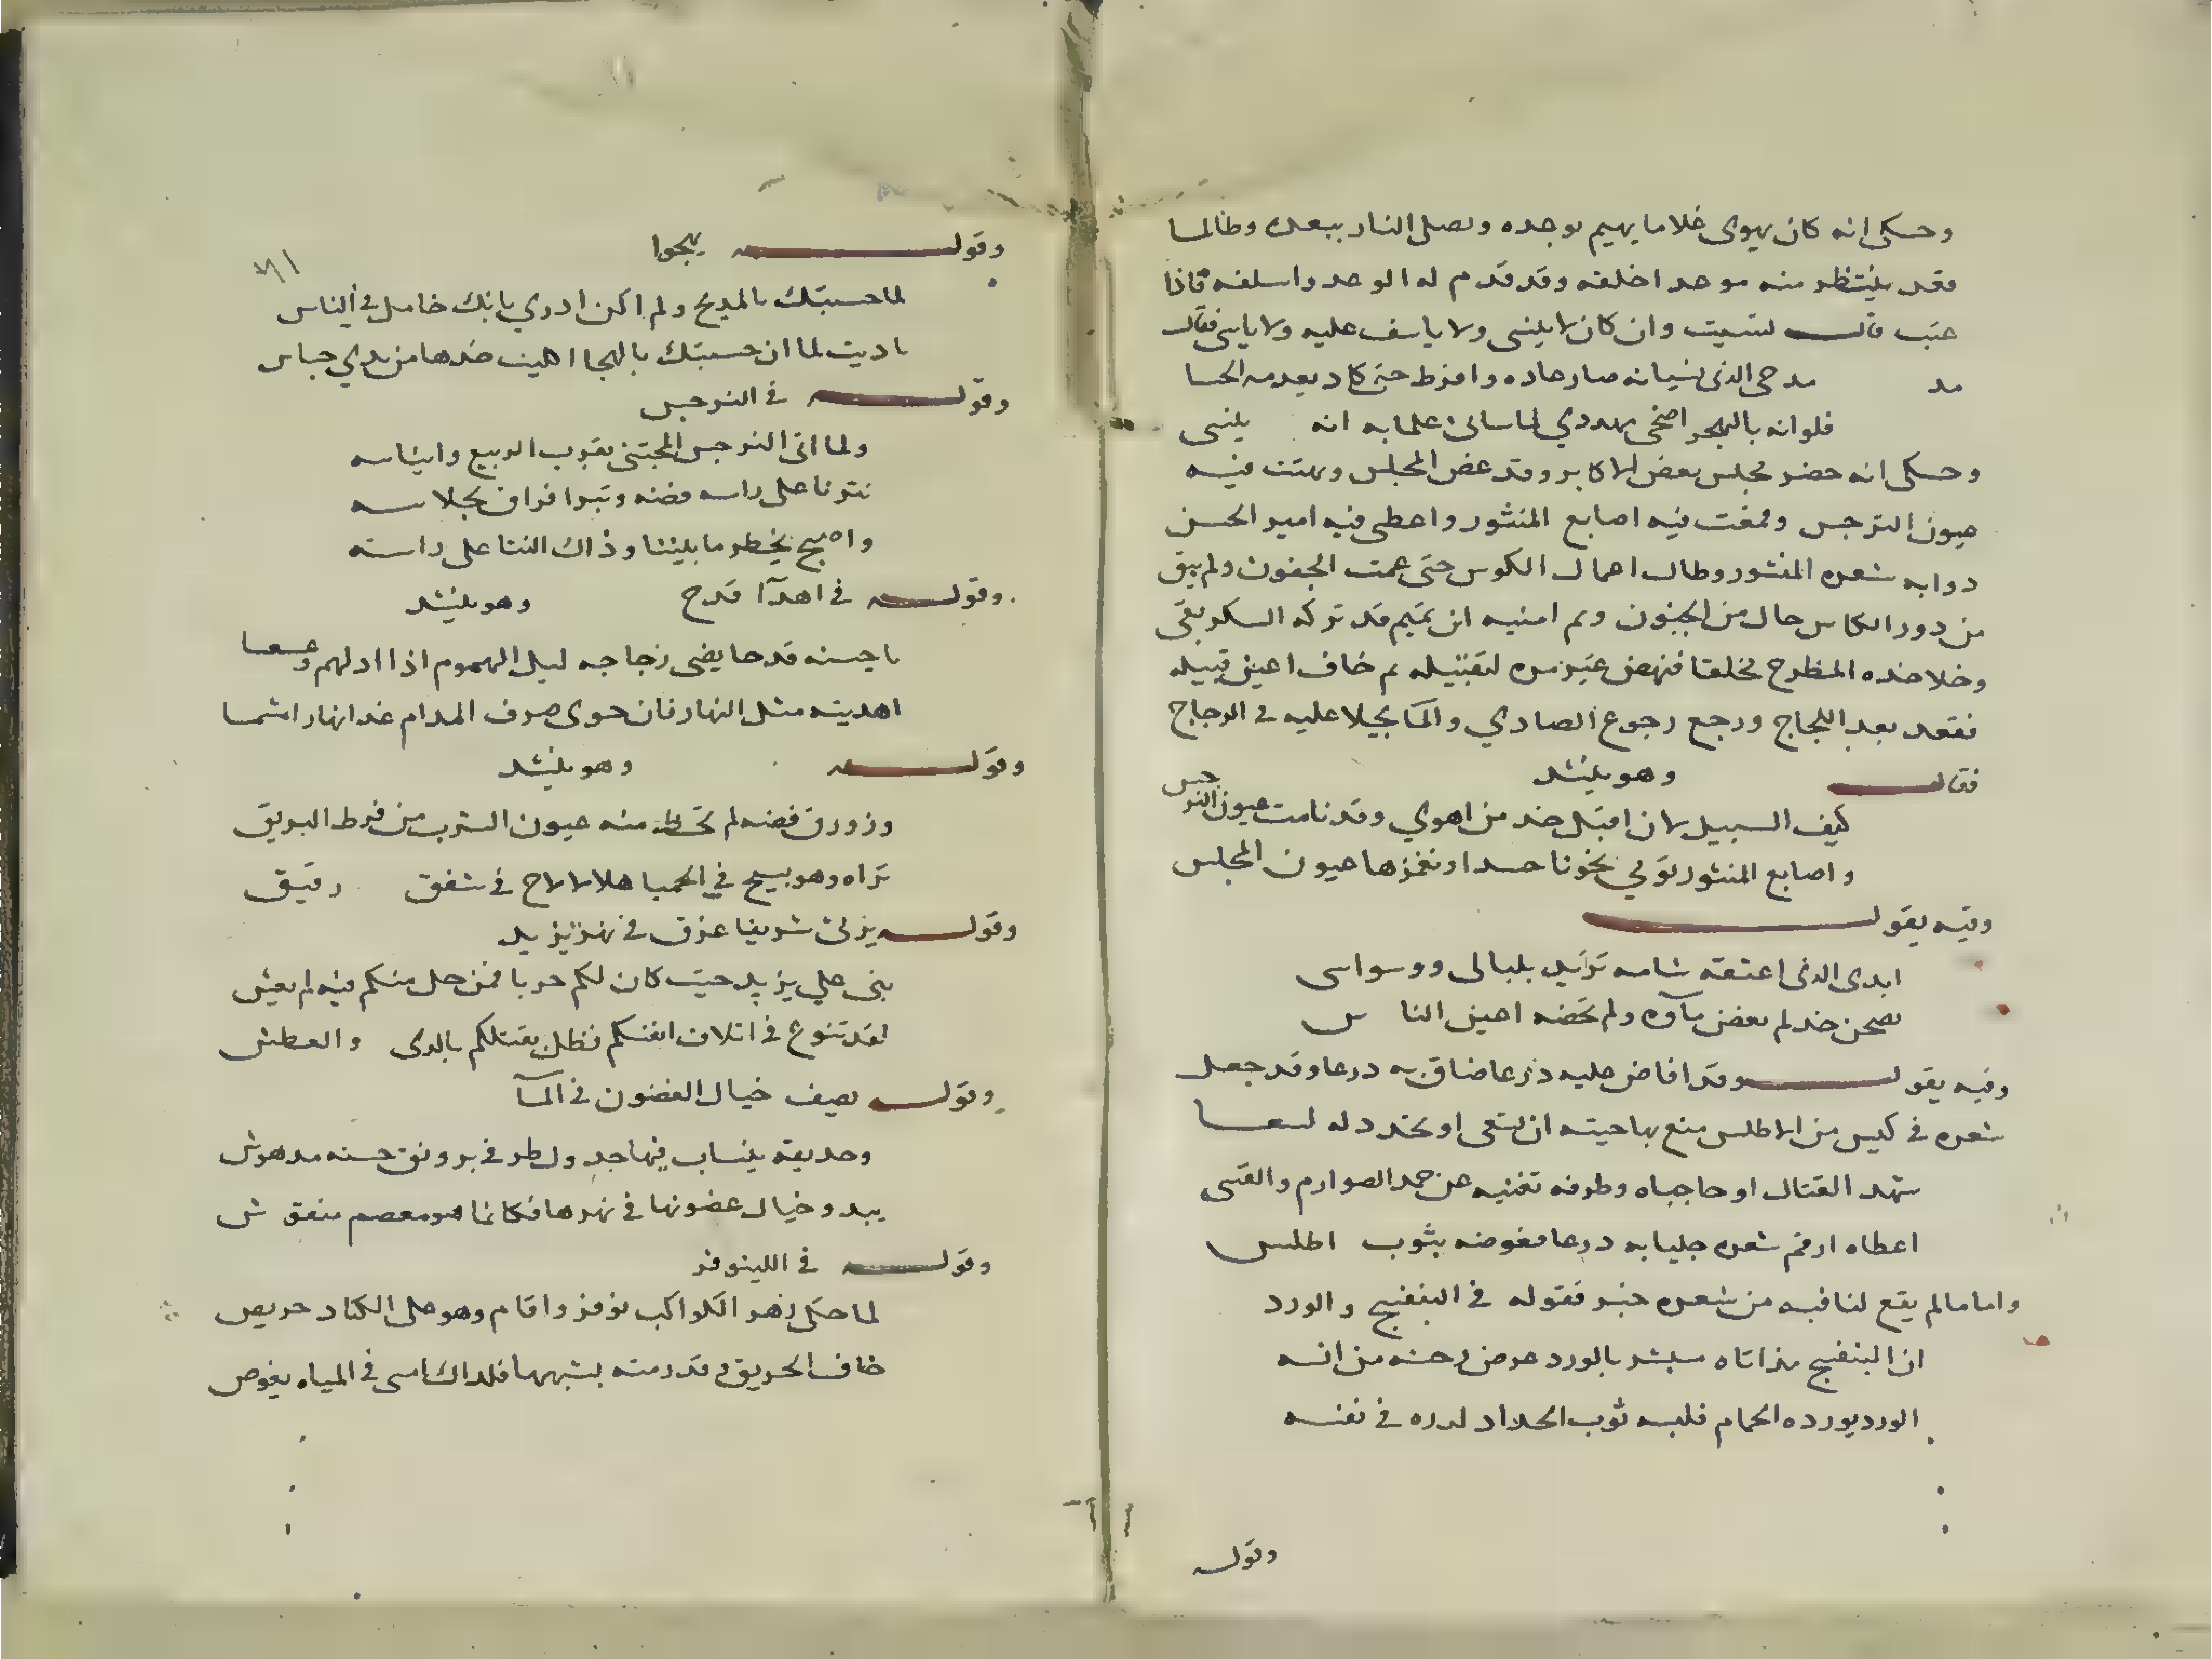 وحكى انه كان يهوى غلاما يهيم بوجده ويصلى النار ببعده وطالما
وقد ينتظر منه موعد اخلفه وقد قدم له الوعد واسلفه فاذا
عتب قال نسيت وان كان لا ينسى ولا ياسف عليه ولا ياسى فقال
مد مدحى الذى نسيانه صار عاده وافرط حتى كاد يعدمه الحسا
فلو انه بالهجر اضحى مهددي لما سانى علما به انه ينسى
وحكى انه حضر مجلس بعض الاكابر وقد غص المجلس وبهتت فيه
عيون النرجس ولمعت فيه اصابع المنثور واعطى فيه امير الحسن
دوابه شعره المنشور وطال اعمال الكوس حتى عمت الجفون ولم يبق
من دور الكاس حال من الجنون وثم امنيه ان يتيم قد تركه السكر بقى
وخلا خده المطرح مخلقا فنهض غير مره لتقبيله ثم خاف اعين قبيله
فقعد بعد اللجاج ورجع رجوع الصادي والما يجلا عليه في الزجاج
فقال وهو ينشد
كيف السبيل لان اقبل خد من اهوي وقد نامت عيون النرجس
واصابع المنثور تومي نحونا حسدا وتغمزها عيون المجلس
وفيه يقول
ابدى الذى اعشقه شامه تزايد بلبالى ووسواسى
بصحن خد لم يغض مآوه ولم تخضه اعين الناس
وفيه يقول وقد افاض عليه درعا ضاق به درعا وقد جعل
شعره في كيس من الاطلس منع بها حيته ان تسعى او تجدد له لسعا
شهد القتال او حاجباه وطرفه تغنيه عن حمد الصوارم والقسى
اعطاه ارقم شعره جلبابه درعا فعوضه بثوب اطلس
واما مالم يقع لنا فيه من شعره خبر فقوله في البنفسج والورد
ان البنفسج مذ اتاه مبشر بالورد عوض وحشه من انسه
الورد يورده الحمام فلبسه ثوب الحداد لورده في نفسه
وقوله
وقوله يهجوا
لما حسبتك بالمديح ولم اكن ادري بانك خامل في الناس
ناديت لما ان حسبتك بالهجا اهليت ضدها من يدي جباس
وقوله في النرجس
ولما اتى النرجس المجتنى بقرب الربيع وايناسه
نثرنا على راسه فضه وتبرا فراق لجلاسه
واصبح يخطر ما بيننا وذاك النثا على راسه
وقوله في اهدآ قدح وهو ينشد
يا حسنه قدحا يضى زجاجه ليل الهموم اذا ادلهم وعسعسا
اهديته مثل النهار فان حوى صرف المدام غدا نهارا مشمسا
وقوله وهو ينشد
وزورق فضه لم تحظ منه عيون الشرب من فرط البريق
تراه وهو يسبح في الحميا هلالا لاح في شفق رقيق
وقوله يرثى شريفا غرق في نهر يزيد
بنى علي يزيد حيث كان لكم حربا فمن حل منكم فيه لم يعش
لقد تنوع في اتلاف انفسكم فظل يقتلكم بالرى والعطش
وقوله يصف خيال الغصون في المآ
وحديقة ينساب فيها جدول طرفي برونق حسنه مدهوش
يبدو خيال غصونها في نهرها فكانما هو معصم منقوش
وقوله في اللينوفر
لما حكى زهر الكواكب نوفر واقام وهو على الكناد حريص
خاف الحريق وقد رمته بشبهها فلذاك امسى في المياه يغوص